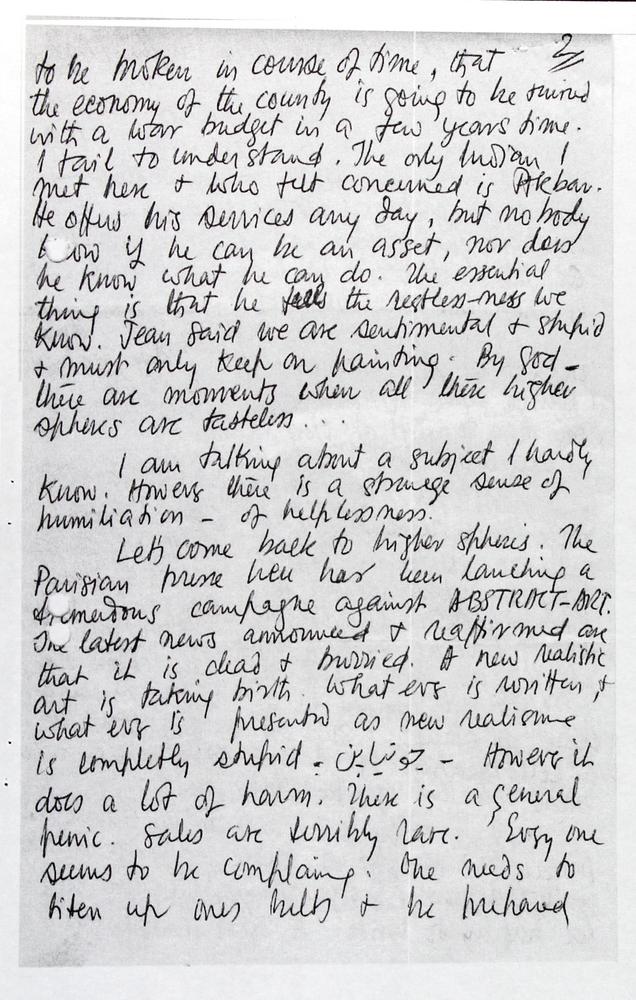 2
to be broken in course of time, that
the economy of the county is going to be ruined
with a war budget in a few years time.
I fail to understand. The only Indian I
met here & who felt concerned is Akbar.
He offers his services any day, but nobody
know if he can be an asset, nor does
he know what he can do. The essential
thing is that he feels the restless-ness we
know. Jean said we are sentimental & stupid
& must only keep on painting. By God –
there are moments when all these higher
spheres are tasteless...
I am talking about a subject I hardly
know. However there is a strange sense of
humiliation – of helplessness.
Let's come back to higher spheres. The
Parisian presse here has been lanching a
tremendous campagne against ABSTRACT-ART.
The latest news announced & reaffirmed are
that it is dead & burried. A new realistic
art is taking birth. What ever is written, &
what ever is presented as new realisme
is completly stupid – – However it
does a lot of harm. There is a general
penic. Sales are terribly rare. Every one
seems to be complaing. One needs to
titen up ones belts & be prepared